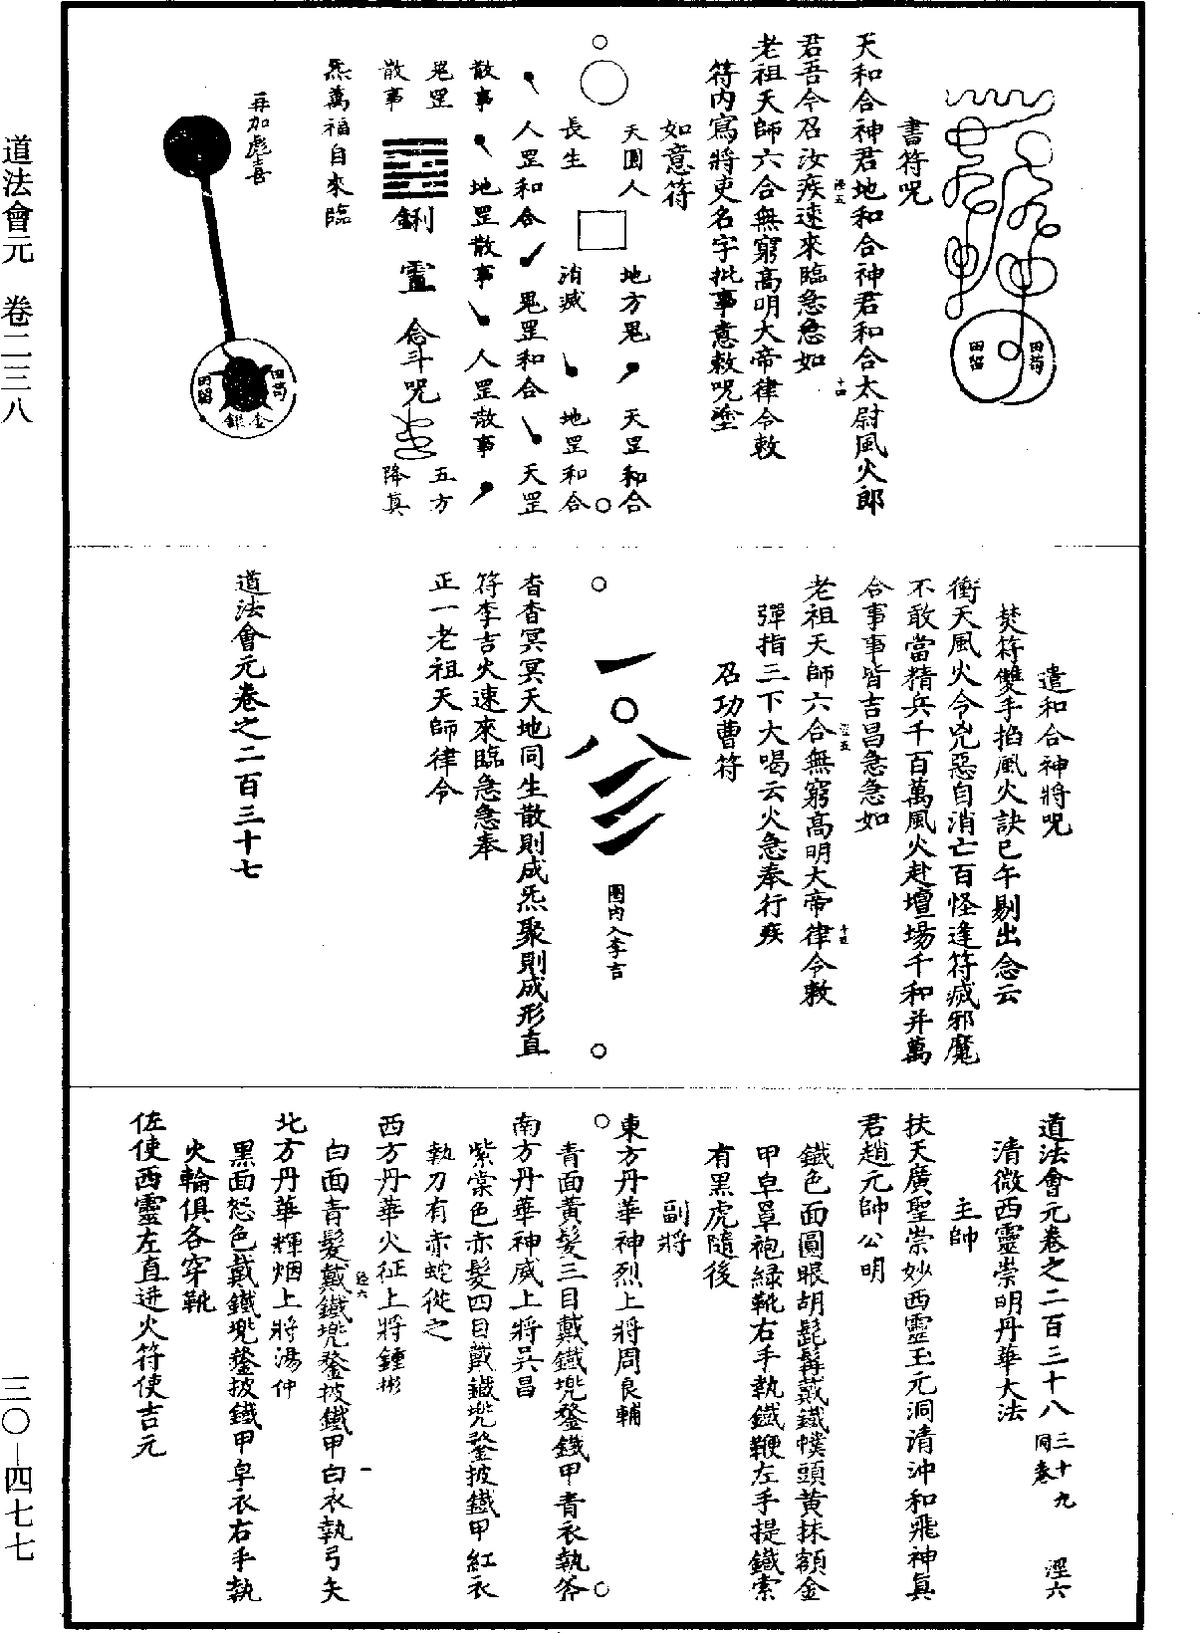 道法會元　卷二三八
三〇—四七七
書符咒
天和合神君地和合神君和合太尉風火郎
君吾今召汝疾速來臨急急如
老祖天師六合無窮高明大帝律令敕
符內寫將吏名字批事意敕咒塗
如意符
天圓人
地方鬼
天罡和合
長生
消滅
地罡和合
人罡和合
鬼罡和合
天罡
散事
地罡散事
人罡散事
鬼罡
散事
靈
念斗咒
五方
降真
炁萬福自來臨
再加彪喜
遣和合神將咒
焚符雙手掐風火訣巳午剔出念云
衝天風火令兇惡自消亡百怪逢符滅邪魔
不敢當精兵千百萬風火赴壇場千和并萬
合事事皆吉昌急急如
老祖天師六合無窮高明大帝律令敕
彈指三下大喝云火急奉行疾
召功曹符
圈內入李吉
杳杳冥冥天地同生散則成炁聚則成形直
符李吉火速來臨急急奉
正一老祖天師律令
道法會元卷之二百三十七
道法會元卷之二百三十八三十九同卷　涇六
清微西靈崇明丹華大法
主帥
扶天廣聖崇妙西靈玉元洞清沖和飛神真
君趙元帥公明
鐵色面圓眼胡髭髯戴鐵幞頭黃抹額金
甲皁罩袍綠靴右手執鐵鞭左手提鐵索
有黑虎隨後
副將
東方丹華神烈上將周良輔
青面黃髮三目戴鐵兜鍪鐵甲青衣執斧
南方丹華神威上將吳昌
紫棠色赤髮四目戴鐵兜鍪披鐵甲紅衣
執刀有赤蛇從之
西方丹華火征上將鍾彬
白面青髮戴鐵兜鍪披鐵甲白衣執弓矢
北方丹華輝烟上將湯仲
黑面怒色戴鐵兜鍪披鐵甲皁衣右手執
火輪俱各穿靴
佐使西靈左直迸火符使吉元